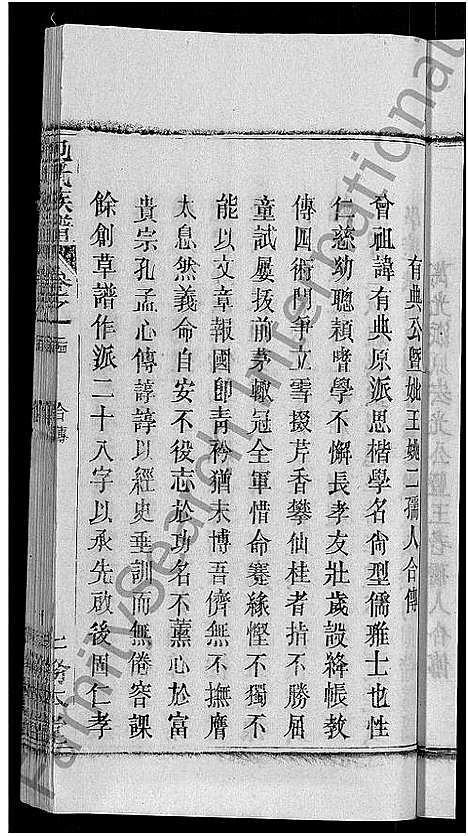 有典公暨姚王姚二孺人合傳
曾祖諱有典原派思楷學名尙型儒雅士也性
仁慈幼聰穎嗜學不懈長孝友壯歲設絳帳教
傳四術門爭立雪掇芹香攀仙桂者指不勝屈
童試屢拔前茅輒冠全軍惜命蹇緣慳不獨不
能以文章報國卽靑衿猶未博吾儕無不撫膺
太息然義命自安不役志於功名不薰心於富
貴宗孔孟心傳諄諄以經史垂訓而無倦容課
餘創草譜作派二十八字以承先啟後固仁孝
氏族譜
卷之一
合傳
FamilySearch International